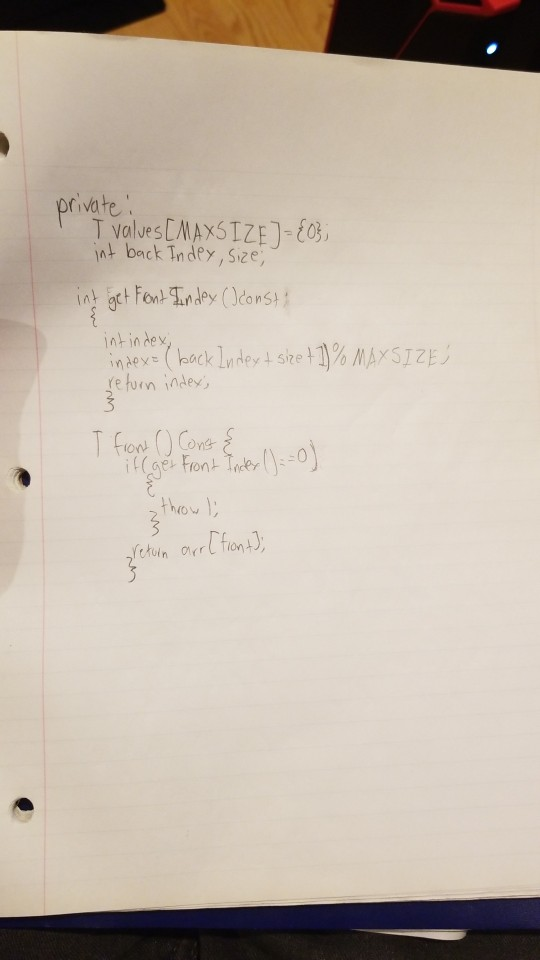 private:
T values[MAXSIZE]={0};
int backIndex, size;
int getFrontIndex()const;
{
int index;
index=(backIndex+size+1)%MAXSIZE;
return index;
}
T front() Const {
if(getFrontIndex()==0)
{
throw 1;
}
return arr[front];
}